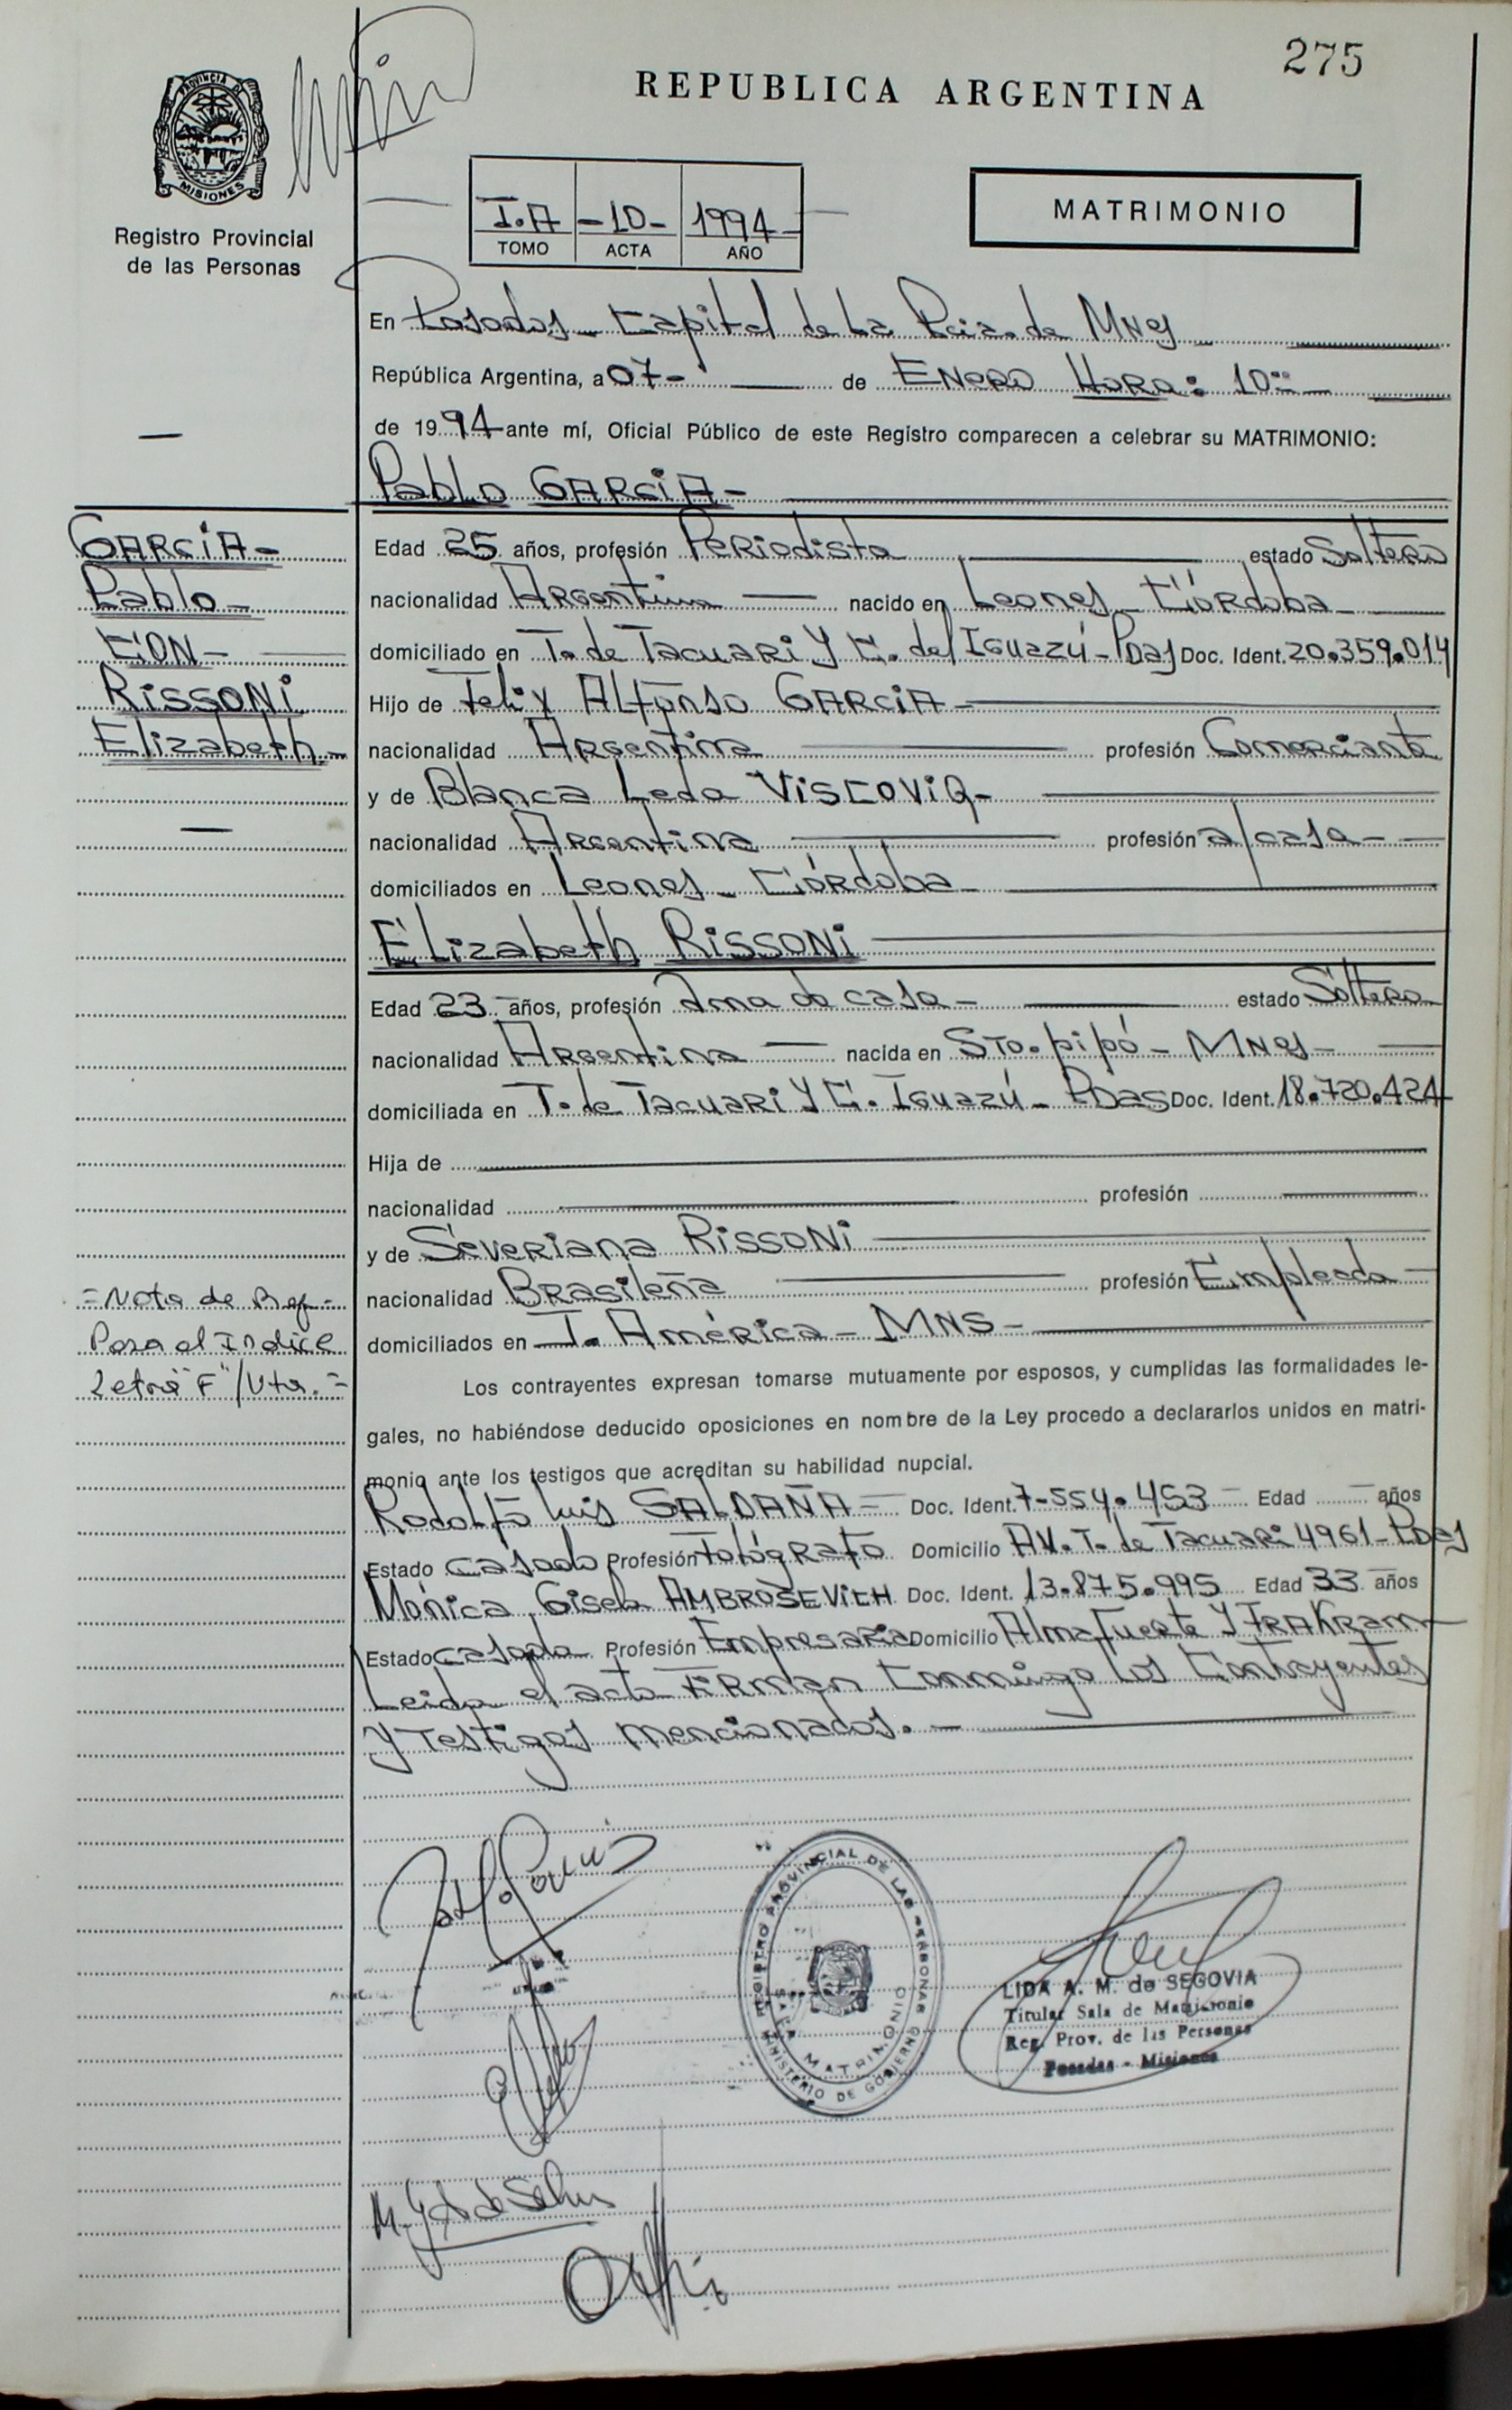 275
REPUBLICA ARGENTINA
PROVINCIA DE
MISIONES
Registro Provincial
de las Personas
I.A -10- 1994-
TOMO ACTA AÑO
MATRIMONIO
En Posadas - Capital de La Pcia. de Mnes
República Argentina, a 07- de Enero Hora: 10
de 1994 ante mí, Oficial Público de este Registro comparecen a celebrar su MATRIMONIO:
Pablo GARCIA-
GARCIA-
Pablo-
CON-
RISSONI
Elizabeth-
Edad 25 años, profesión Periodista estado Soltero
nacionalidad Argentina nacido en Leones - Córdoba
domiciliado en T. de Tacuari Y C. del Iguazú - Pdas Doc. Ident. 20.359.014
Hijo de Felix Alfonso GARCIA-
nacionalidad Argentina profesión Comerciante
y de Blanca Leda VISCOVIG-
nacionalidad Argentina profesión a/casa-
domiciliados en Leones - Córdoba
Elizabeth RISSONI
Edad 23 años, profesión Ama de casa- estado Soltera
nacionalidad Argentina nacida en Sto. pipó - Mnes-
domiciliada en T. de Tacuari Y C. Iguazú - Pdas Doc. Ident. 18.720.424
Hija de
nacionalidad profesión
y de Severiana RISSONI
nacionalidad Brasileña profesión Empleada
domiciliados en J. América - MNS-
=Nota de Ref.-
Para el Indice
Letra "F"/Vta.=
Los contrayentes expresan tomarse mutuamente por esposos, y cumplidas las formalidades le-
gales, no habiéndose deducido oposiciones en nombre de la Ley procedo a declararlos unidos en matri-
monio ante los testigos que acreditan su habilidad nupcial.
Rodolfo Luis SALDAÑA Doc. Ident. 7.554.453 Edad años
Estado casado Profesión Fotógrafo Domicilio AV. T. de Tacuari 4961 - Pdas
Mónica Gisela AMBROSEVICH Doc. Ident. 13.875.995 Edad 33 años
Estado casada Profesión Empresaria Domicilio Almafuerte Y TRAKRAM
Leida el acta Firman Conmigo Los Contrayentes
Y Testigos mencionados.-
REGISTRO PROVINCIAL DE LAS PERSONAS
SALA MATRIMONIO
MINISTERIO DE GOBIERNO
LIDA A. M. de SEGOVIA
Titular Sala de Matrimonio
Reg. Prov. de las Personas
Posadas - Misiones